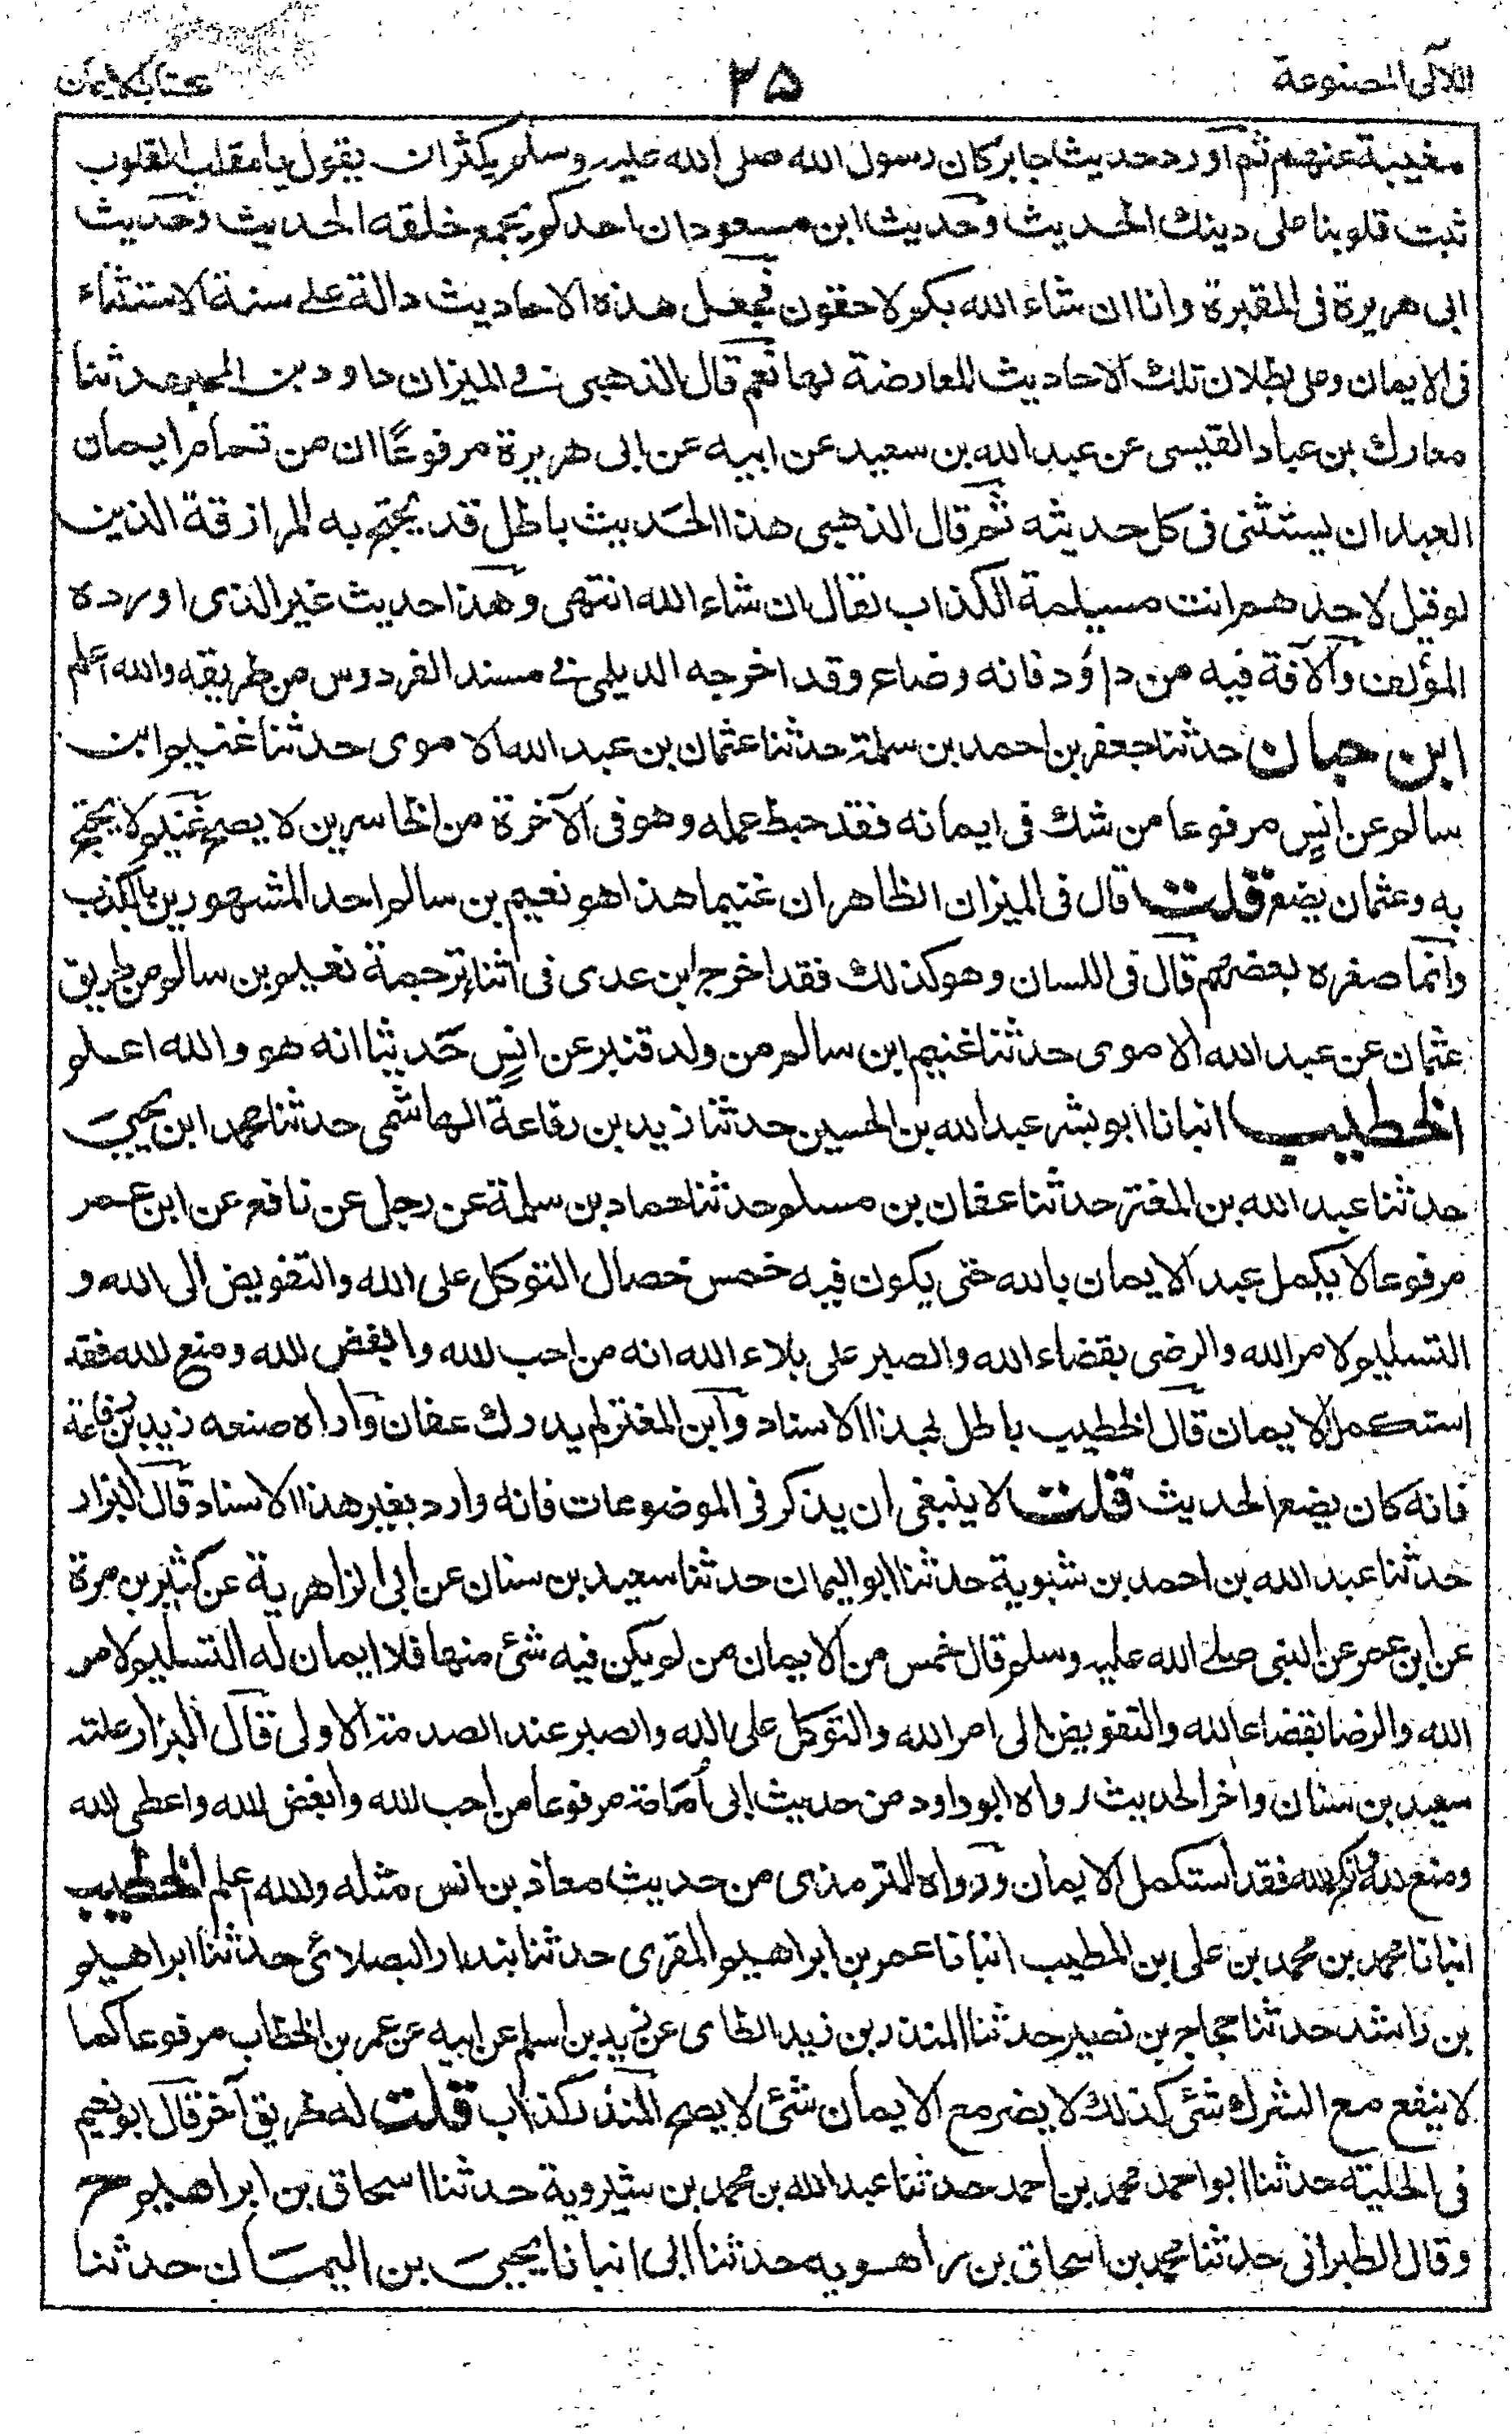 اللآلى المصنوعة
۲۵
كتاب الايمان
مغيبة عنهم ثم اورد حديث جابر كان رسول الله صلى الله عليه وسلم يكثر ان يقول يا مقلب القلوب
ثبت قلوبنا على دينك الحديث وحديث ابن مسعود ان احدكم يجمع خلقه الحديث وحديث
ابى هريرة فى المقبرة وانا ان شاء الله بكم لاحقون فجعل هذه الاحاديث دالة على سنة الاستثناء
فى الايمان وعلى بطلان تلك الاحاديث المعارضة لها نعم قال الذهبى فى الميزان داود بن المحبر حدثنا
معارك بن عباد القيسى عن عبد الله بن سعيد عن ابيه عن ابى هريرة مرفوعًا ان من تمام ايمان
العبد ان يستثنى فى كل حديثه ثم قال الذهبى هذا الحديث باطل قد يحتج به المرازقة الذين
لو قيل لاحدهم انت مسيلمة الكذاب لقال ان شاء الله انتهى وهذا حديث غير الذى اورده
المؤلف والآفة فيه من داؤد فانه وضاع وقد اخرجه الديلمى فى مسند الفردوس من طريقه والله اعلم
ابن حبان حدثنا جعفر بن احمد بن سلمة حدثنا عثمان بن عبد الله الاموى حدثنا غنيم ابن
سالم عن انسٍ مرفوعا من شك فى ايمانه فقد حبط عمله وهو فى الآخرة من الخاسرين لا يصح غنيم لا يحتج
به وعثمان يضع قلت قال فى الميزان الظاهر ان غنيما هذا هو نعيم بن سالم احد المشهورين بالكذب
وانما صغره بعضهم قال فى اللسان وهو كذلك فقد اخرج ابن عدى فى اثناء ترجمة نعيم بن سالم من طريق
عثمان عن عبد الله الاموى حدثنا غنيم ابن سالم من ولد قنبر عن انسٍ حديثا انه هو والله اعلم
الخطيب انبانا ابو بشر عبد الله بن الحسين حدثنا زيد بن رفاعة الهاشمى حدثنا محمد ابن يحيى
حدثنا عبد الله بن المغتز حدثنا عفان بن مسلم حدثنا حماد بن سلمة عن رجل عن نافع عن ابن عمر
مرفوعا لا يكمل عبد الايمان بالله حتى يكون فيه خمس خصال التوكل على الله والتفويض الى الله و
التسليم لامر الله والرضى بقضاء الله والصبر على بلاء الله انه من احب لله وابغض لله ومنع لله فقد
استكمل الايمان قال الخطيب باطل بهذا الاسناد وابن المغتز لم يدرك عفان واراه صنعه زيد بن رفاعة
فانه كان يضع الحديث قلت لا ينبغى ان يذكر فى الموضوعات فانه وارد بغير هذا الاسناد قال البزار
حدثنا عبد الله بن احمد بن شبوية حدثنا ابو اليمان حدثنا سعيد بن سنان عن ابى الزاهرية عن كثير بن مرة
عن ابن عمر عن النبى صلى الله عليه وسلم قال خمس من الايمان من لم يكن فيه شئ منها فلا ايمان له التسليم لامر
الله والرضا بقضاء الله والتفويض الى امر الله والتوكل على الله والصبر عند الصدمة الاولى قال البزار علته
سعيد بن سنان واخر الحديث رواه ابو داود من حديث ابى أمامة مرفوعا من احب لله وابغض لله واعطى لله
ومنع لله فقد استكمل الايمان ورواه الترمذى من حديث معاذ بن انس مثله والله اعلم الخطيب
انبانا محمد بن محمد بن على بن المطيب انبانا عمر بن ابراهيم المقرى حدثنا بندار البصلائى حدثنا ابراهيم
بن راشد حدثنا حجاج بن نصير حدثنا المنذر بن زيد الطاى عن زيد بن اسلم عن ابيه عن عمر بن الخطاب مرفوعا كما
لا ينفع مع الشرك شئ كذلك لا يضر مع الايمان شئ لا يصح المنذر كذاب قلت له طريق آخر قال ابو نعيم
فى الحلية حدثنا ابو احمد محمد بن احمد حدثنا عبد الله بن محمد بن شيروية حدثنا اسحاق بن ابراهيم ح
وقال الطبرانى حدثنا محمد بن اسحاق بن راهويه حدثنا ابى انبانا يحيى بن اليمان حدثنا